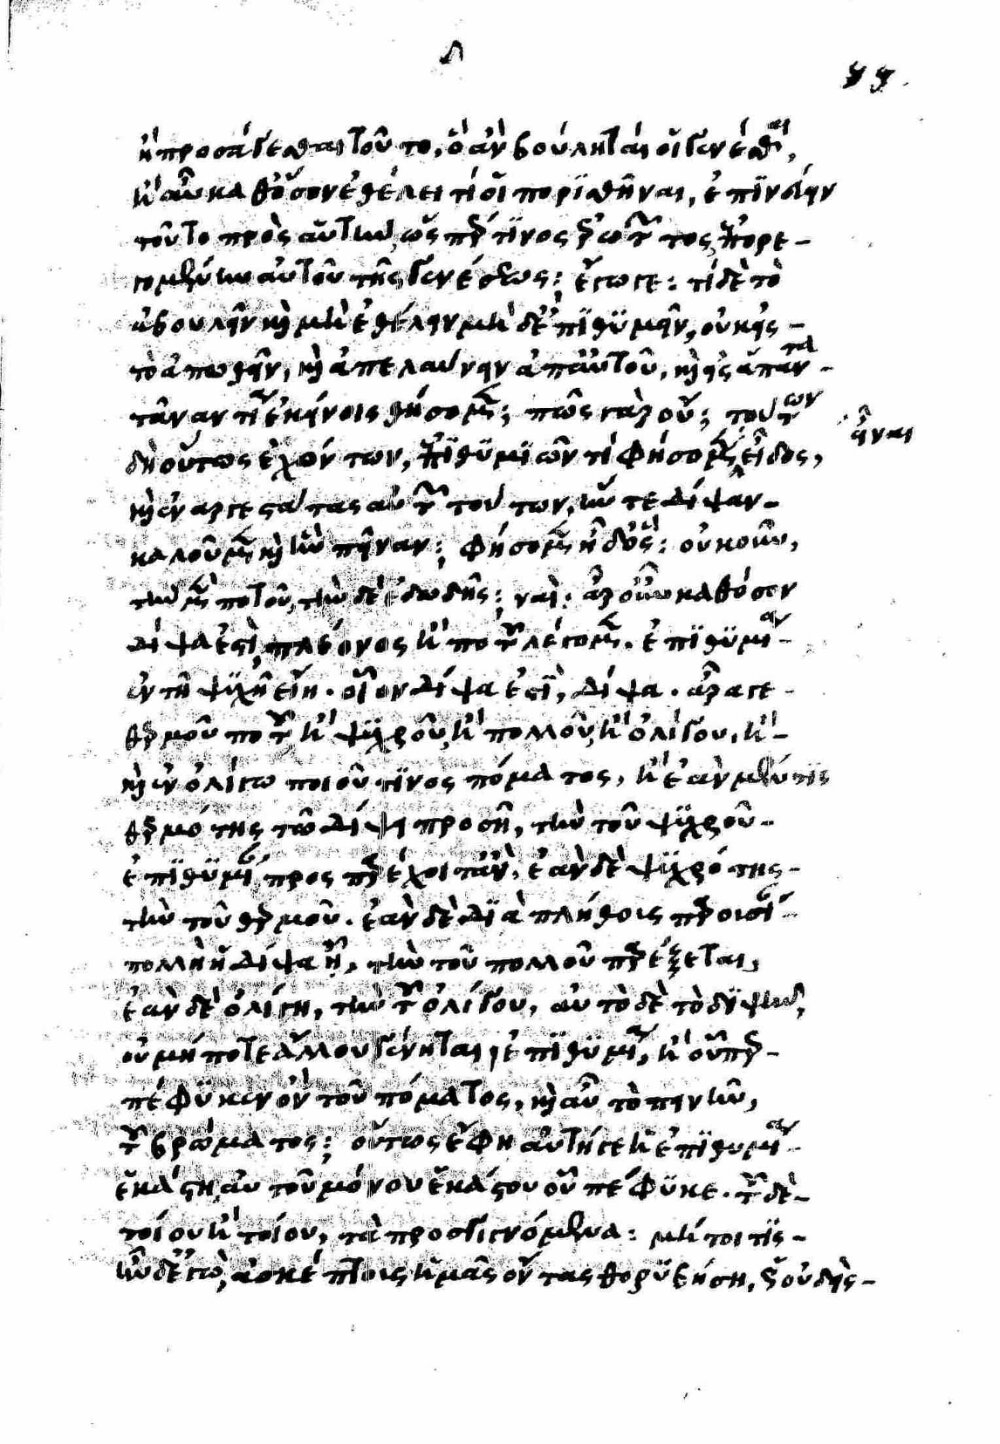 ἢ προσάγεσθαι τοῦτο, ὃ ἂν βούληταί οἱ γενέσθαι,
ἢ αὖ καθ' ὅσον ἐθέλει τί οἱ πορϊσθῆναι, ἐπϊνεύειν
τοῦτο πρὸς αὑτὴν, ὥσπερ τϊνος ἐρωτῶντος, ἐπορε-
γομένην αὐτοῦ τῆς γενέσεως; ἔγωγε: τί δὲ τὸ
ἀβουλεῖν καὶ μὴ ἐθέλειν μὴ δ' ἐπϊθϋμεῖν, οὐκ εἰς
τὸ ἀπωθεῖν, καὶ ἀπελαύνειν ἀπ' αὐτοῦ, καὶ εἰς ἅπαντα
τἀναντία ἐκείνοις θήσομεν; πῶς γὰρ οὔ; τούτων
δὴ οὕτως ἐχόντων, ἐπϊθϋμϊῶν τί φήσομεν εἶδος,
εἶναι
καὶ ἐναργεστάτας αὐτῶν τούτων, ἥν τε δίψαν
καλοῦμεν καὶ ἣν πεῖναν; φήσομεν ἦ δ' ὅς: οὐκοῦν,
τὴν μὲν ποτοῦ, τὴν δὲ ἐδωδῆς; ναὶ: ἆρ' οὖν καθόσον
δίψα ἐστὶ, πλέονος ἢ ποτοῦ λέγομεν. ἐπϊθϋμίαν
ἐν τῇ ψϋχῇ εἶναι. οἷον δίψα ἐστὶ, δίψα. ἆρά γε
θερμοῦ ποτοῦ ἢ ψϋχροῦ, ἢ πολλοῦ, ἢ ὀλίγου, ἢ
καὶ ἐν ὀλίγω ποιοῦ τϊνος πόματος, ἢ ἐὰν μέν τϊς
θερμότης τῶ δίψει προσῇ, τὴν τοῦ ψϋχροῦ
ἐπϊθϋμίαν προσπαρέχοι τ' ἂν, ἐὰν δὲ ψϋχρότης
τὴν τοῦ θερμοῦ. ἐὰν δὲ δϊὰ πλήθους παρουσίαν
πολλὴ ἡ δίψα ᾖ, τὴν τοῦ πολλοῦ παρέξεται,
ἐὰν δὲ ὀλίγη, τὴν τοῦ ὀλίγου, αὐτὸ δὲ τὸ δϊψῆν,
οὐ μή ποτε ἄλλου γένηται ἐπϊθϋμία, ἢ οὗπερ
πέφϋκεν αὐτοῦ πόματος, καὶ αὖ τὸ πεινῆν,
τοῦ βρώματος; οὕτως ἔφη αὐτή γε ἡ ἐπϊθυμία
ἑκάστη, αὐτοῦ μόνου ἑκάστου οὗ πέφϋκε. τοῦ δὲ
τοίου ἢ τοίου, τὰ προσγιγνόμενα: μή τοι τϊς
ἦν δ' ἐγὼ, ἀσκέπτους ἡμᾶς ὄντας θορϋβήσῃ, ὡς οὐδεὶς